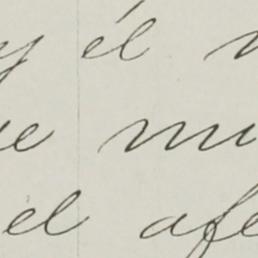 y él
mu
el afe